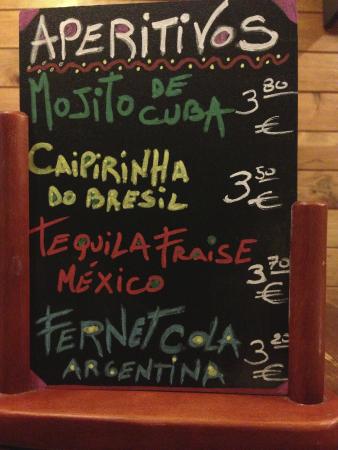 APERITIVOS
MOJITO DE CUBA 3,80 €
CAIPIRINHA
DO BRESIL 3,50 €
TEQUILA FRAISE
MÉXICO 3,70 €
FERNET COLA
ARGENTINA 3,20 €